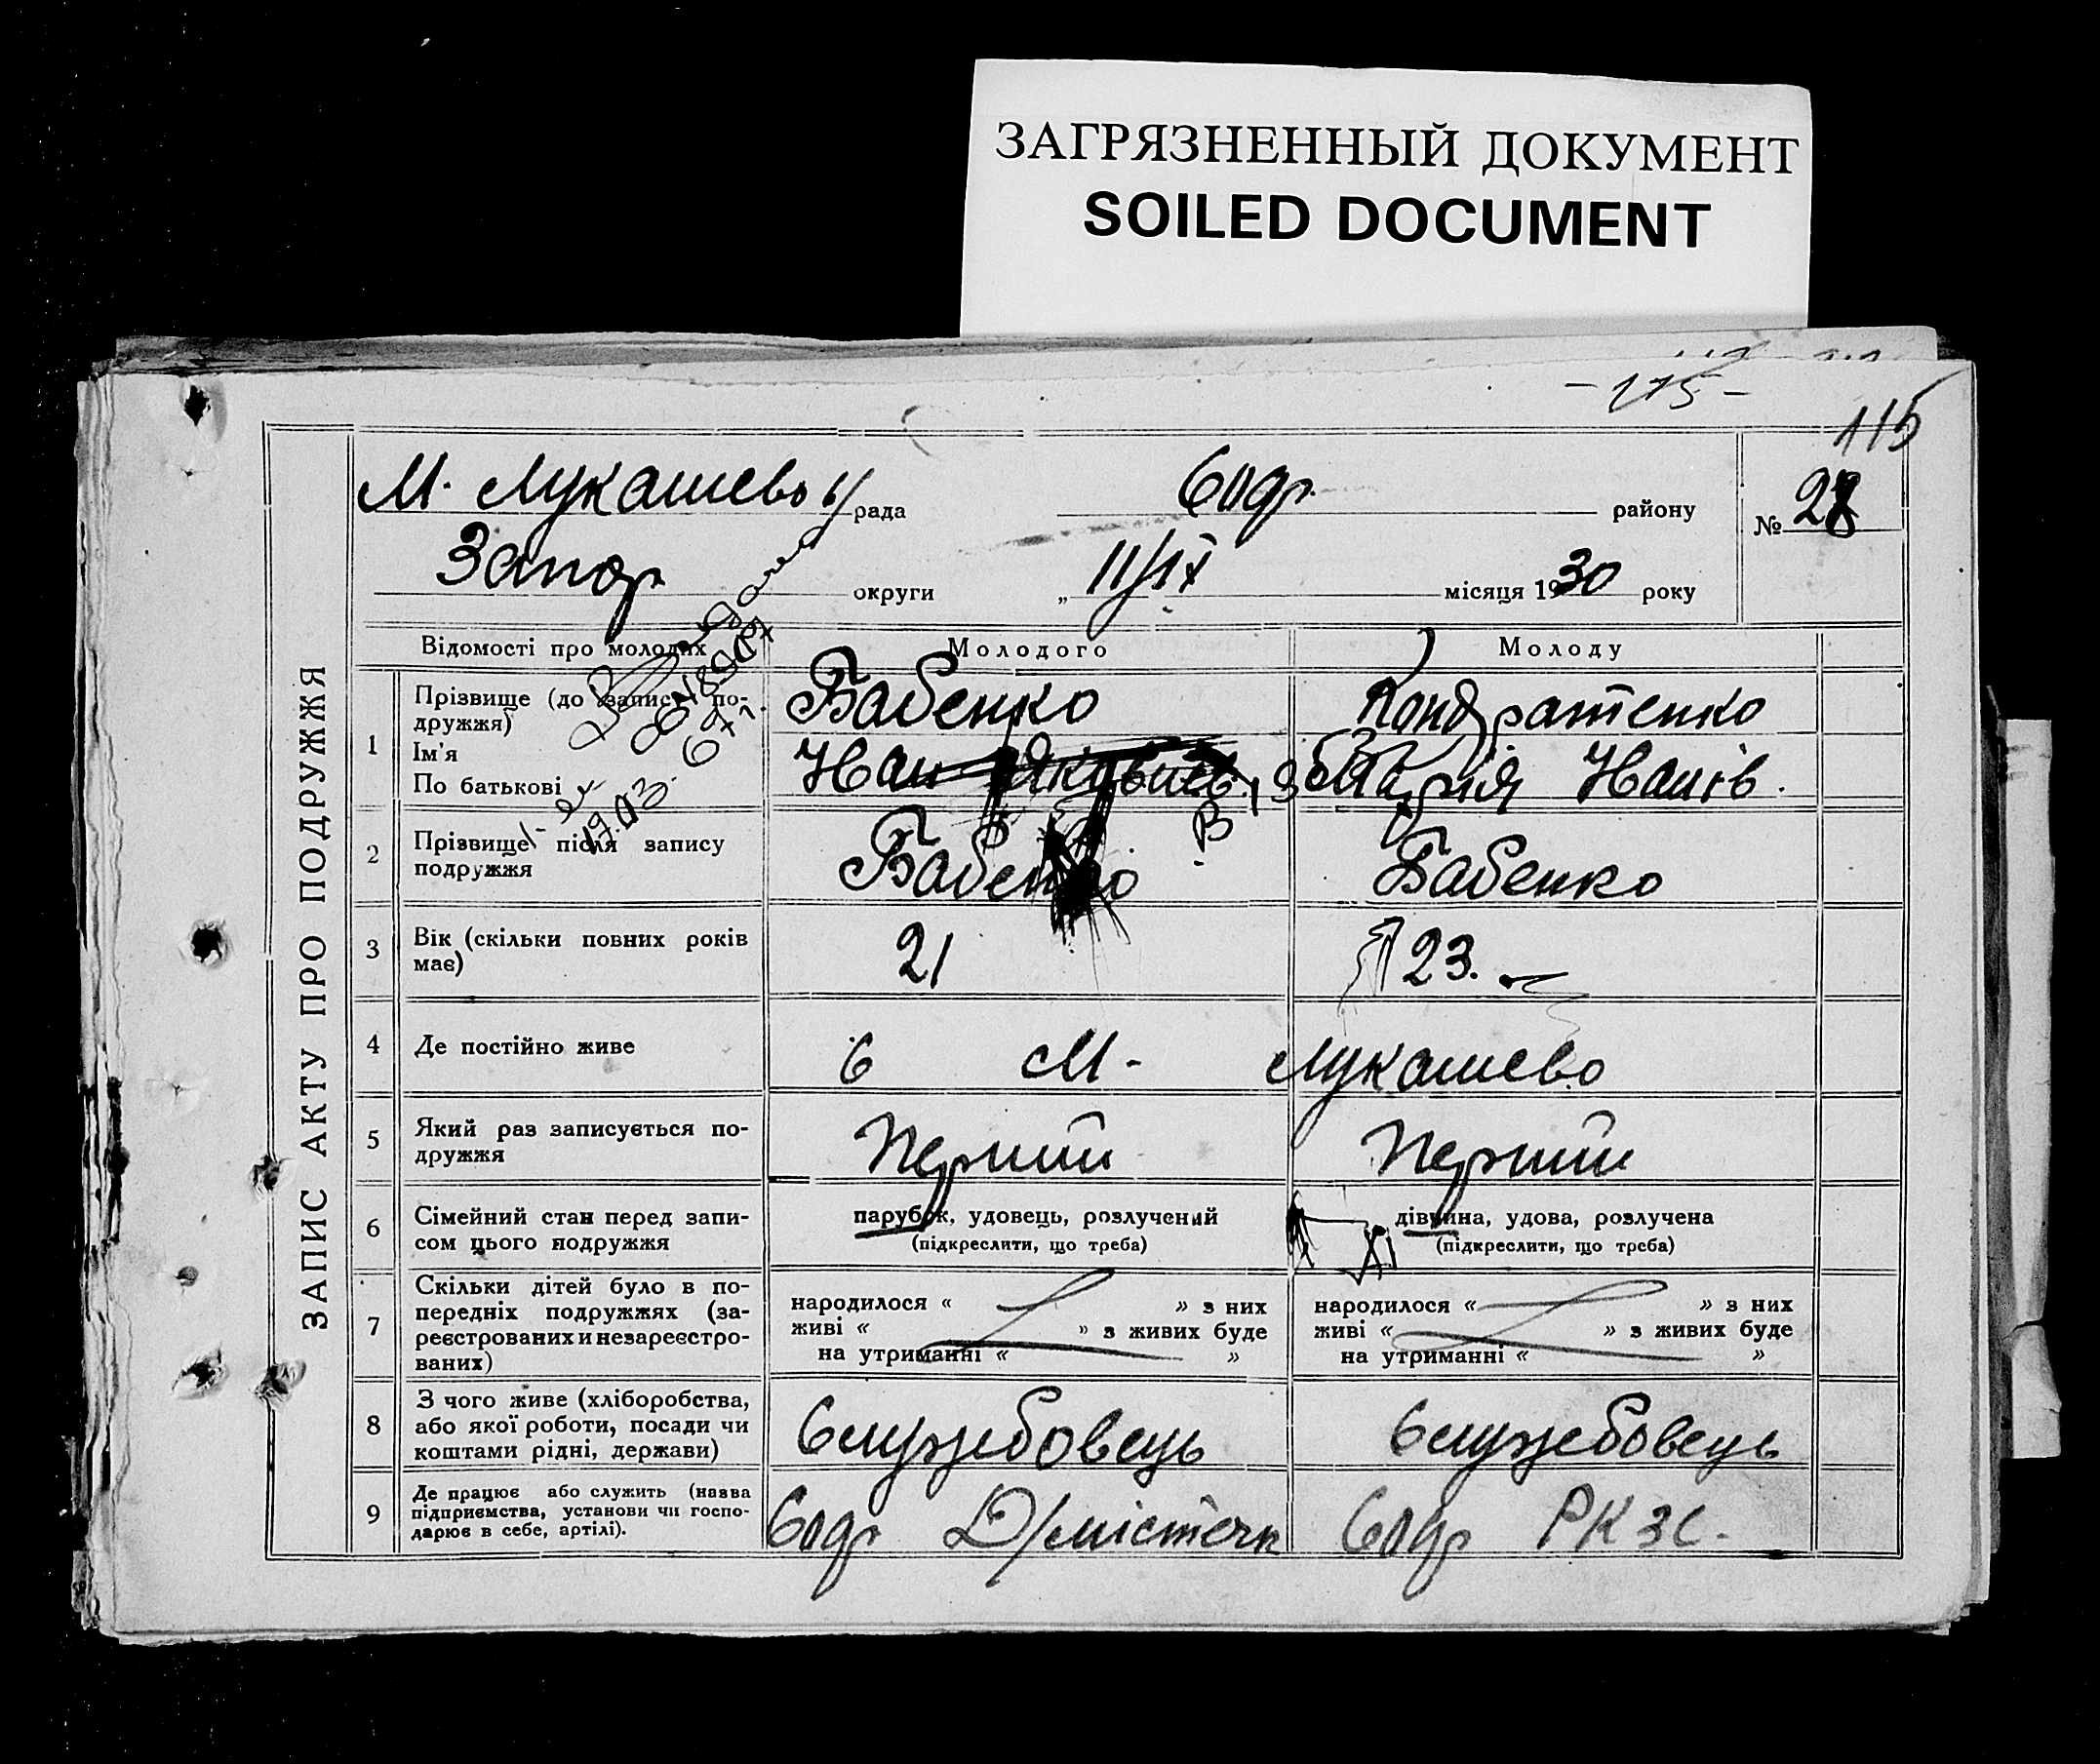 ЗАГРЯЗНЕННЫЙ ДОКУМЕНТ
SOILED DOCUMENT
- 115 -
115
М. Лукашево с/рада Софр. району № 28
Запор округи „ 11/IX місяця 1930 року
ЗАПИС АКТУ ПРО ПОДРУЖЖЯ
Відомості про молодих Молодого Молоду
1 Прізвище (до запису по-
дружжя)
Бабенко Кондратенко
Ім'я
По батькові
Марія Іванів.
2 Прізвище після запису
подружжя
Бабенко Бабенко
3 Вік (скільки повних років
має)
21 23.
4 Де постійно живе с М- Лукашево
5 Який раз записується по-
дружжя
Перший Перший
6 Сімейний стан перед запи-
сом цього подружжя
парубок, удовець, розлучений
(підкреслити, що треба)
дівчина, удова, розлучена
(підкреслити, що треба)
7 Скільки дітей було в по-
передніх подружжях (за-
реєстрованих и незареєстро-
ваних)
народилося « » з них
живі « » з живих буде
на утриманні « »
народилося « » з них
живі « » з живих буде
на утриманні « »
8 З чого живе (хліборобства,
або якої роботи, посади чи
коштами рідні, держави)
Службовець Службовець
9 Де працює або служить (назва
підприємства, установи чи госпо-
дарює в себе, артілі).
Софр Софр РКЗС.